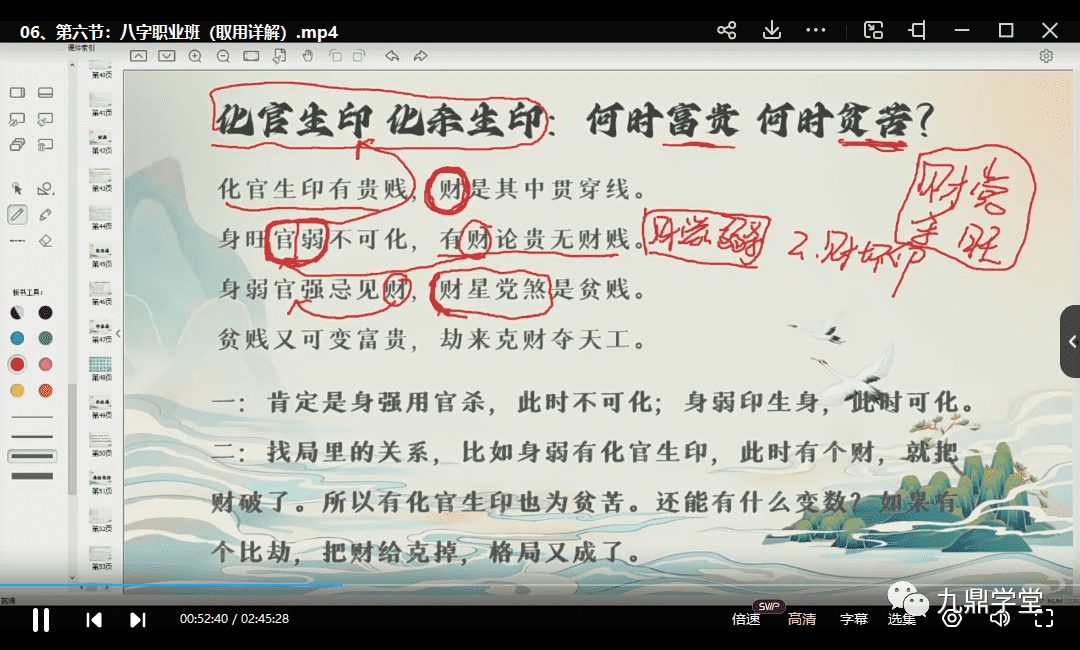 06、第六节：八字职业班（取用详解）.mp4
课件索引
第40页
第41页
第42页
第43页
第44页
第45页
第46页
第47页
第48页
第49页
第50页
第51页
第52页
第53页
板书工具：
化官生印 化杀生印：何时富贵 何时贫苦？
化官生印有贵贱，财是其中贯穿线。
身旺官弱不可化，有财论贵无财贱。
身弱官强忌见财，财星党煞是贫贱。
贫贱又可变富贵，劫来克财夺天工。
财党
2.财坏印
旺
一：肯定是身强用官杀，此时不可化；身弱印生身，此时可化。
二：找局里的关系，比如身弱有化官生印，此时有个财，就把
财破了。所以有化官生印也为贫苦。还能有什么变数？如果有
个比劫，把财给克掉，格局又成了。
九鼎学堂
00:52:40 / 02:45:28
倍速
SWP
高清
字幕
选集